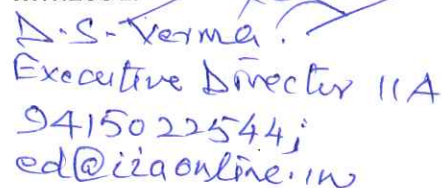 D.S. Verma.
Executive Director IIA
94150 22544;
ed@iiaonline.in